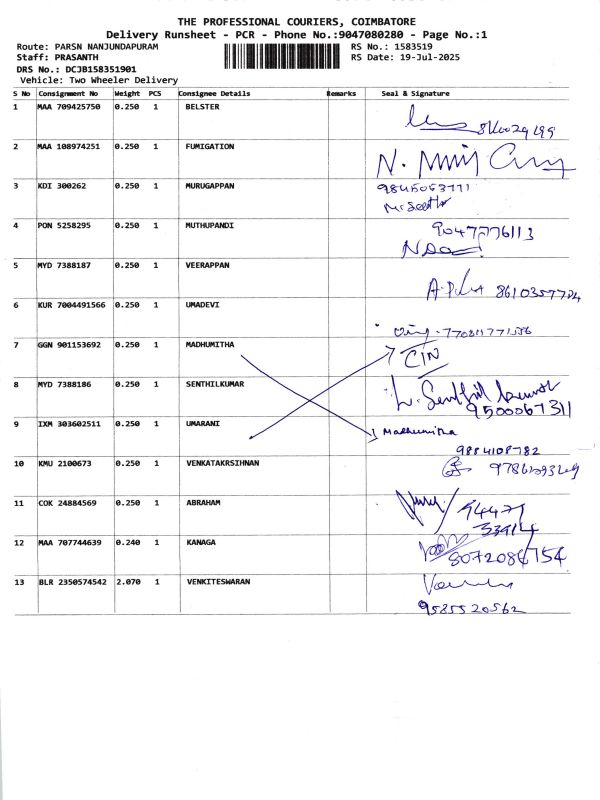 THE PROFESSIONAL COURIERS, COIMBATORE
Delivery Runsheet - PCR - Phone No.:9047080280 - Page No.:1
Route: PARSN NANJUNDAPURAM RS No.: 1583519
Staff: PRASANTH RS Date: 19-Jul-2025
DRS No.: DCJB158351901
Vehicle: Two Wheeler Delivery
S No Consignment No Weight PCS Consignee Details Remarks Seal & Signature
1 MAA 709425750 0.250 1 BELSTER
2 MAA 108974251 0.250 1 FUMIGATION
N.
3 KDI 300262 0.250 1 MURUGAPPAN
4 PON 5258295 0.250 1 MUTHUPANDI
9047776113
5 MYD 7388187 0.250 1 VEERAPPAN
8610357704
6 KUR 7004491566 0.250 1 UMADEVI
7 GGN 901153692 0.250 1 MADHUMITHA
CIN
8 MYD 7388186 0.250 1 SENTHILKUMAR
9500067311
9 IXM 303602511 0.250 1 UMARANI
Madhumitha
9884108782
10 KMU 2100673 0.250 1 VENKATAKRSIHNAN
11 COK 24884569 0.250 1 ABRAHAM
94471
33914
12 MAA 707744639 0.240 1 KANAGA
8072084754
13 BLR 2350574542 2.070 1 VENKITESWARAN
9585520562